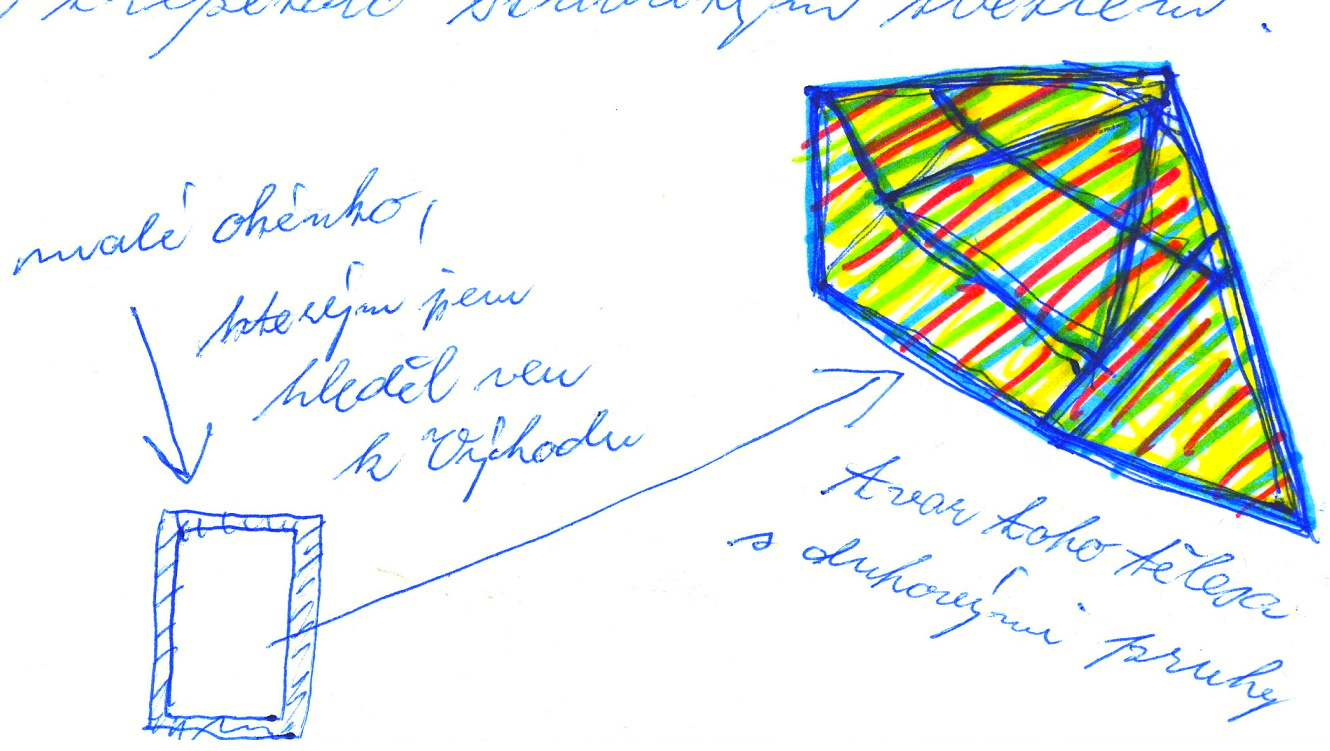 světlem.
malé okénko,
kterým jsem
hleděl ven
k Východu
tvar toho tělesa
s duhovými pruhy